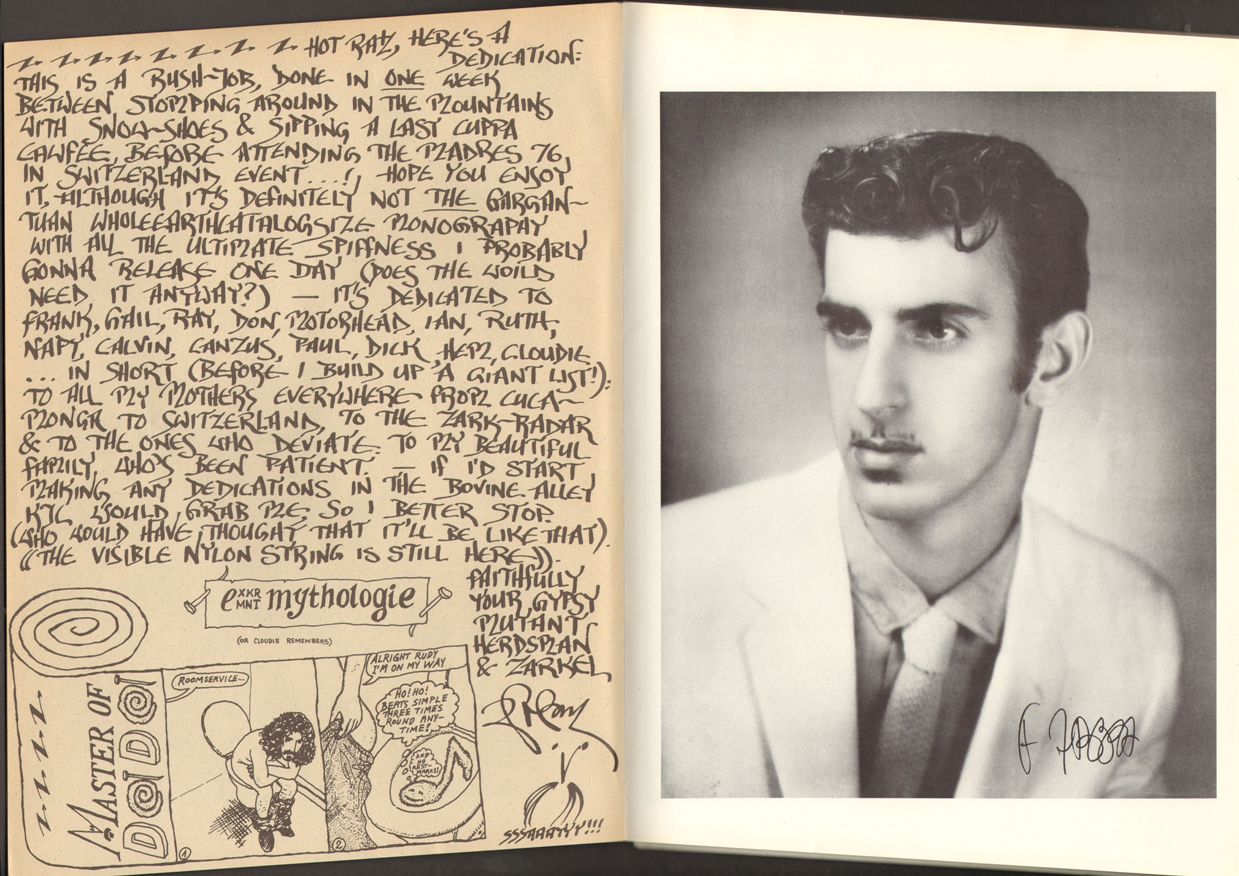 HOT RATZ, HERE'S A
DEDICATION:
THIS IS A RUSH-JOB, DONE IN ONE WEEK
BETWEEN STOMPING AROUND IN THE MOUNTAINS
WITH SNOW-SHOES & SIPPING A LAST CUPPA
CAWFEE, BEFORE ATTENDING THE MADRES 76,
IN SWITZERLAND EVENT...! HOPE YOU ENJOY
IT, ALTHOUGH IT'S DEFINITELY NOT THE GARGAN-
TUAN WHOLEEARTHCATALOGSIZE MONOGRAPAY
WITH ALL THE ULTIMATE SPIFFNESS I PROBABLY
GONNA RELEASE ONE DAY (DOES THE WOILD
NEED IT ANYWAY?) — IT'S DEDICATED TO
FRANK, GAIL, RAY, DON, MOTORHEAD, IAN, RUTH,
NAPY, CALVIN, CANZUS, PAUL, DICK, HEM, CLOUDIE
... IN SHORT (BEFORE I BUILD UP A GIANT LIST!):
TO ALL MY MOTHERS EVERYWHERE FROM CUCA-
MONGA TO SWITZERLAND, TO THE ZARK-RADAR
& TO THE ONES WHO DEVIATE. TO MY BEAUTIFUL
FAMILY, WHO'S BEEN PATIENT. — IF I'D START
MAKING ANY DEDICATIONS IN THE BOVINE ALLEY
KYL WOULD GRAB ME SO I BETTER STOP.
(WHO WOULD HAVE THOUGHT THAT IT'LL BE LIKE THAT)
((THE VISIBLE NYLON STRING IS STILL HERE)).
FAITHFULLY
YOUR GYPSY
MUTANT
HERDSMAN
& ZARKEL
SSSAAAYYY!!!
eXKR MNT mythologie
(OR CLOUDIE REMEMBERS)
MASTER OF
DADA
ROOMSERVICE...
1
ALRIGHT RUDY
I'M ON MY WAY
HO! HO!
BEATS SIMPLE
THREE TIMES
ROUND ANY-
TIME!
AND
NO
REST-
MARKS!
2
F ZAPPA